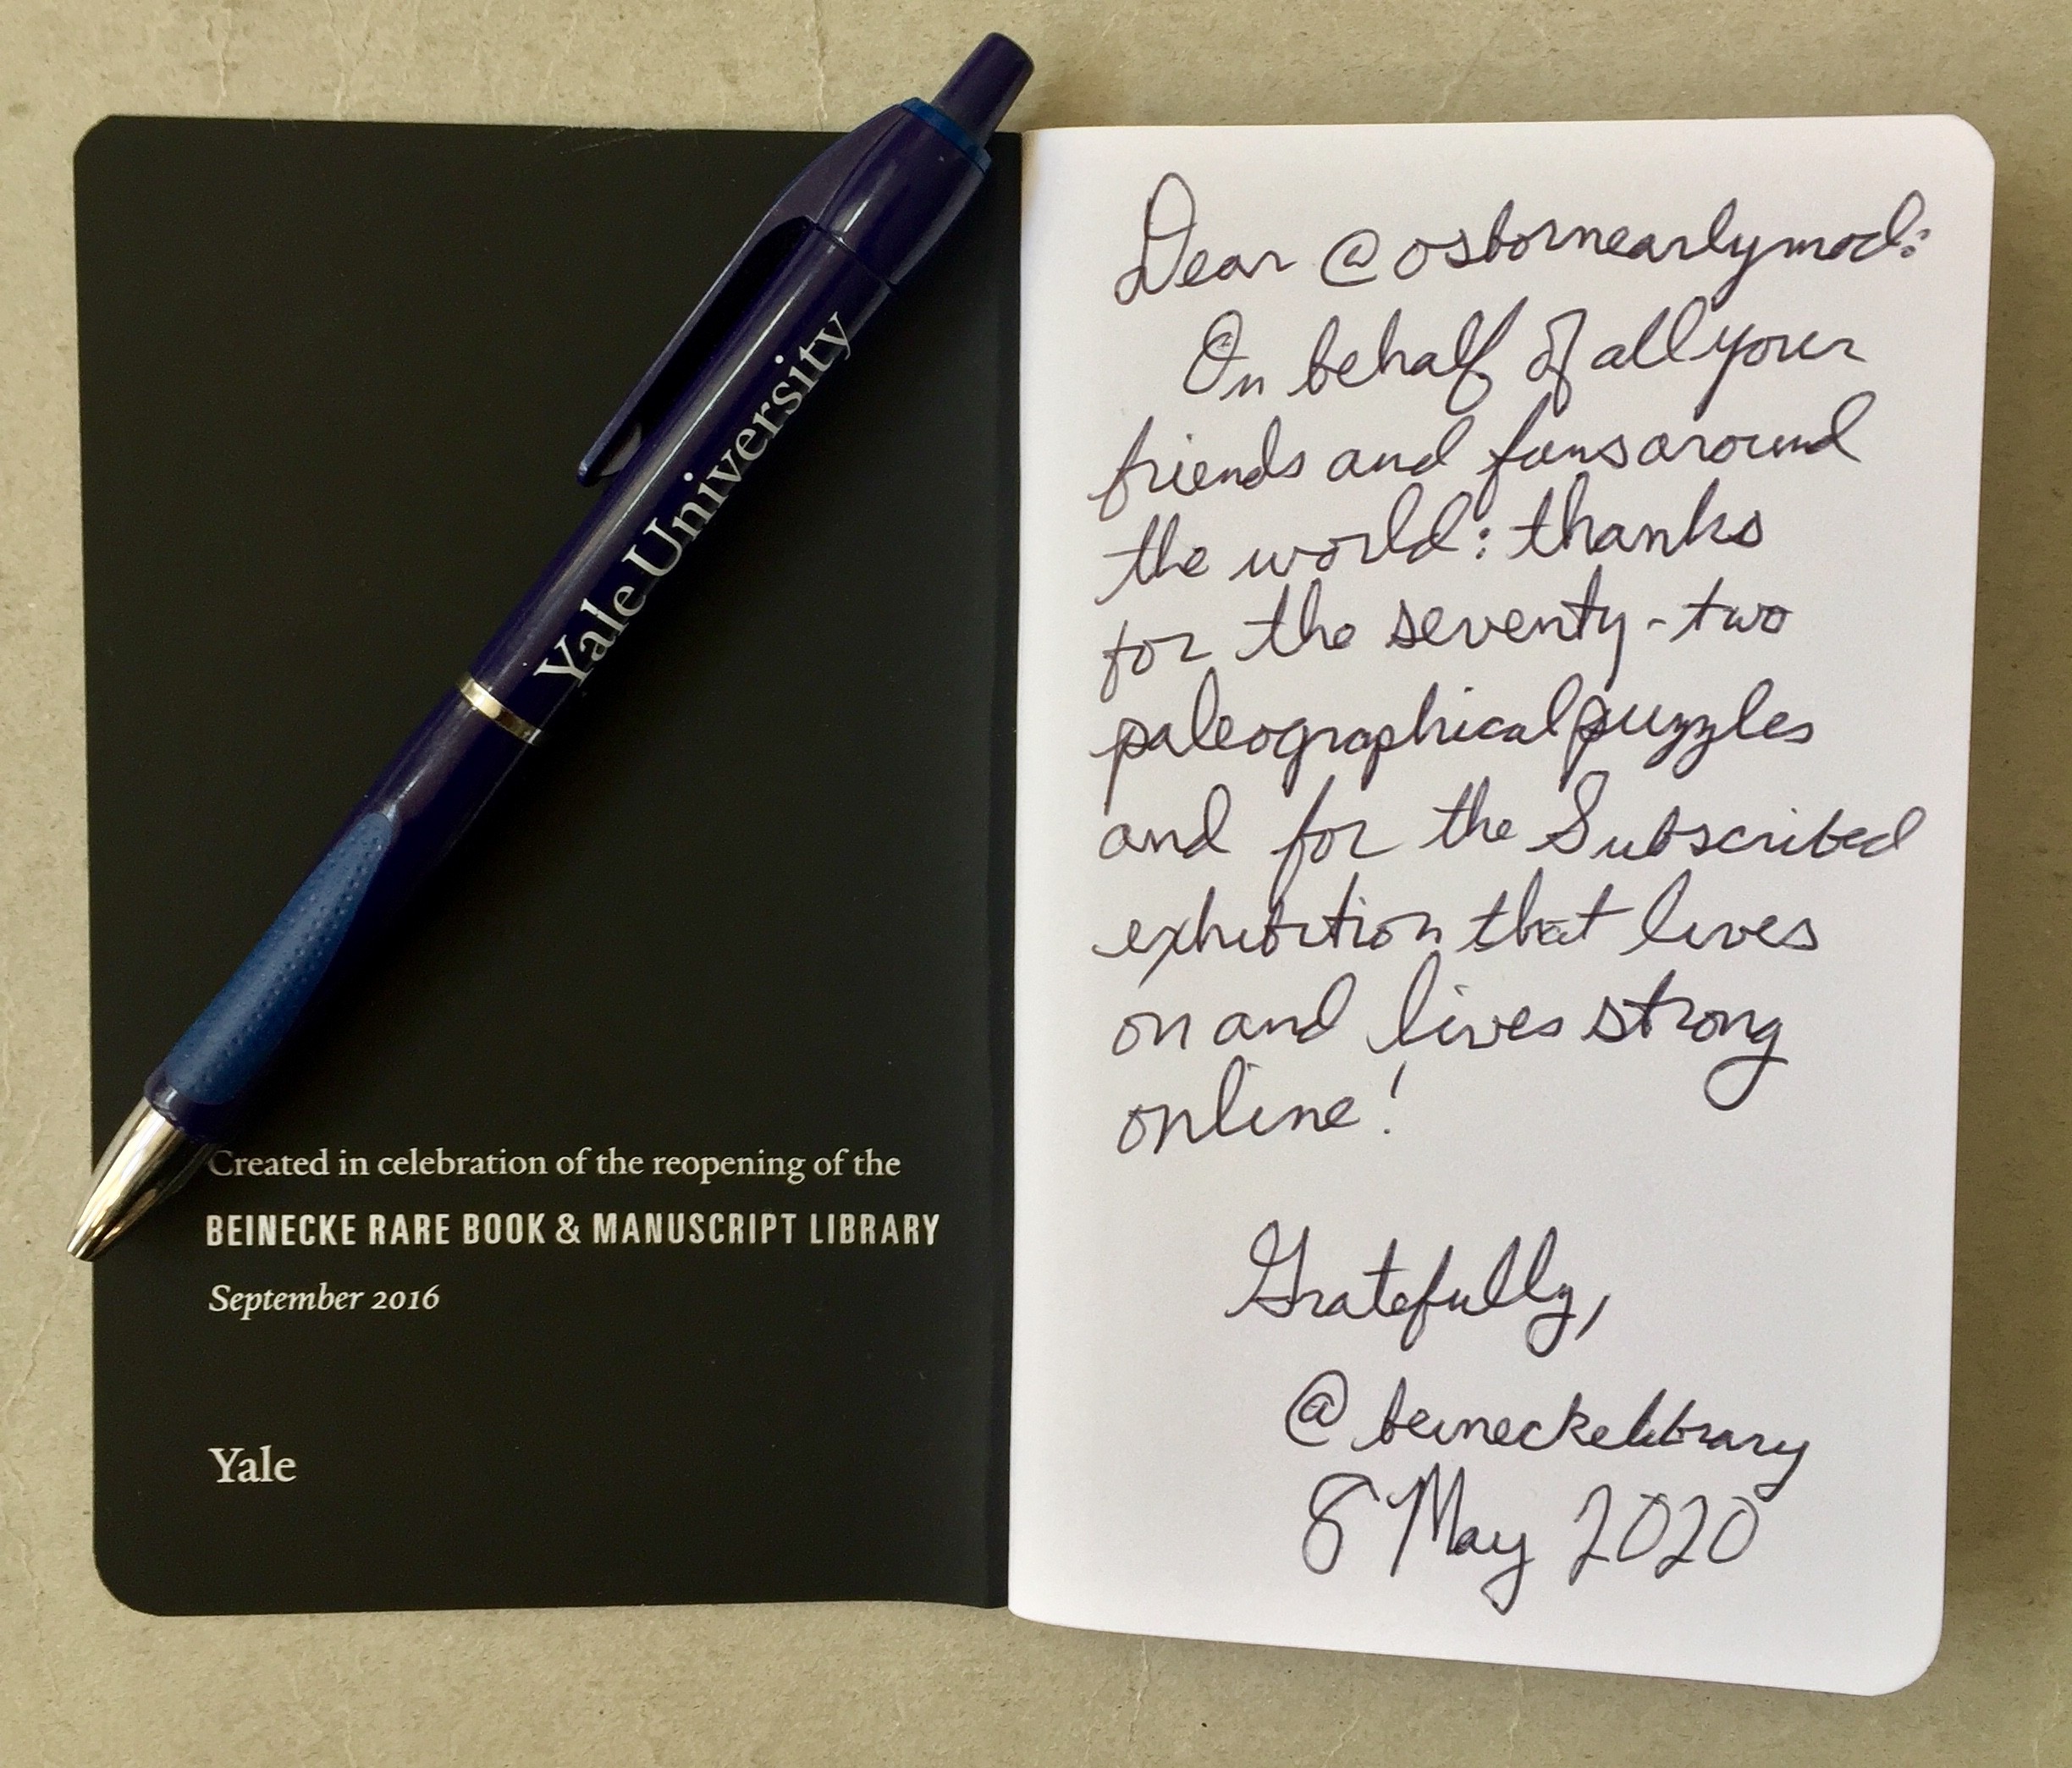 Yale University
Created in celebration of the reopening of the
BEINECKE RARE BOOK & MANUSCRIPT LIBRARY
September 2016
Yale
Dear @osbornearlymod:
On behalf of all your
friends and fans around
the world: thanks
for the seventy-two
paleographical puzzles
and for the Subscribed
exhibition that lives
on and lives strong
online!
Gratefully,
@beineckelibrary
8 May 2020